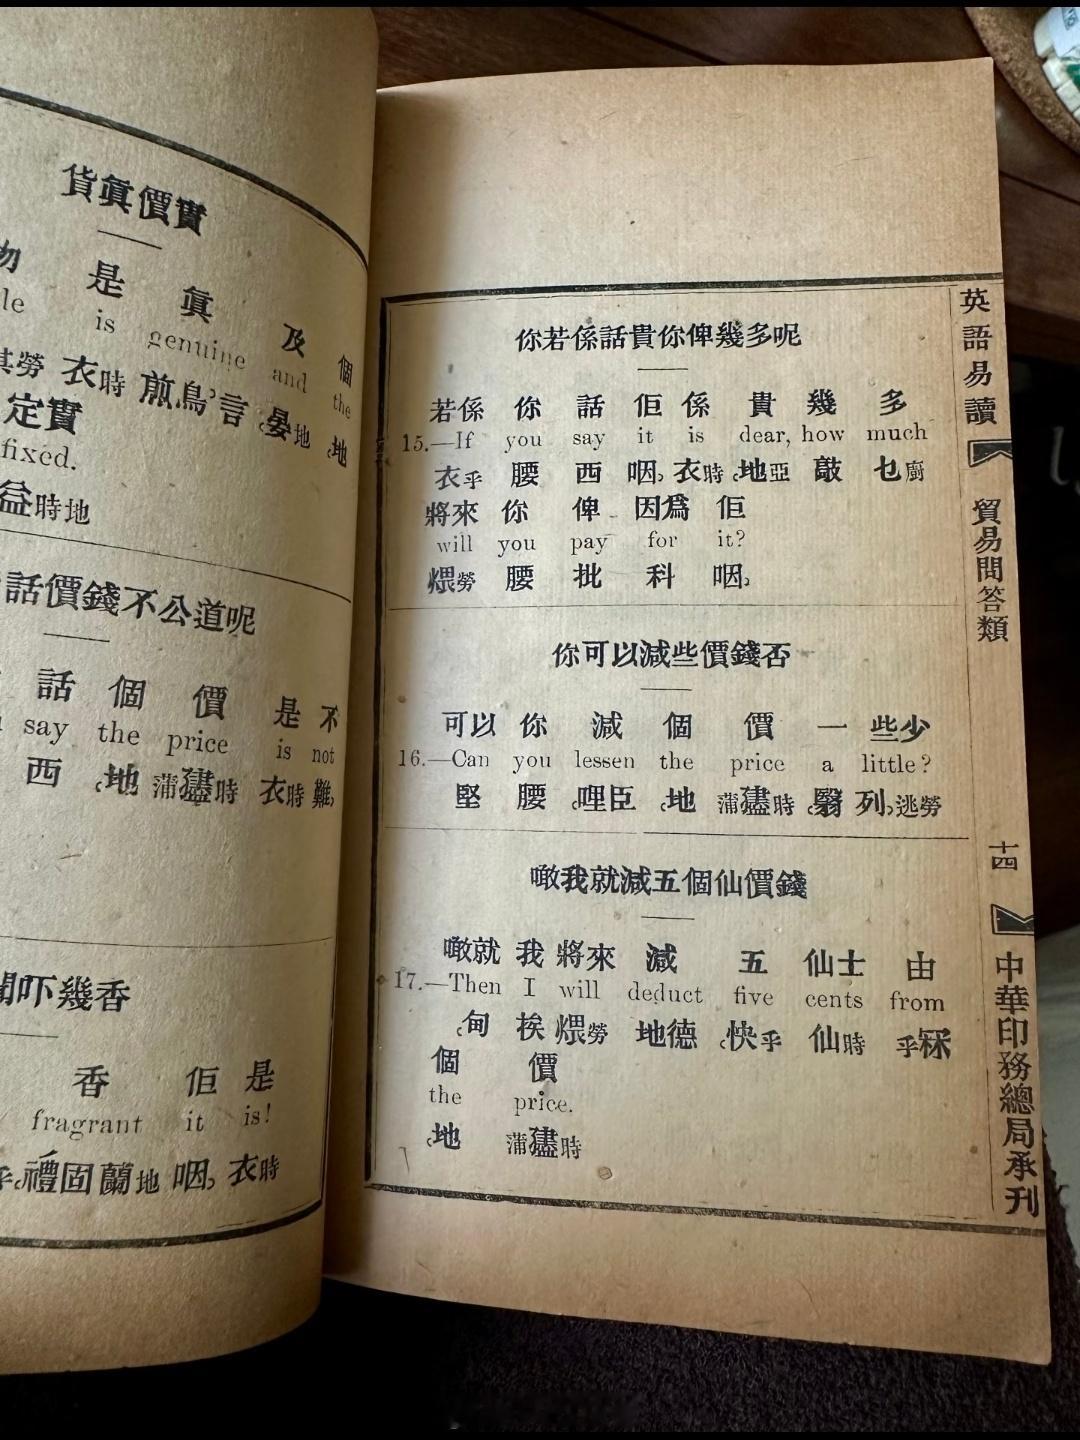 貨眞價實
物 是 眞 及 個
le is genuine and the
其勞 衣時 煎鳥言 晏地 地
定實
fixed.
益時地
話價錢不公道呢
話 個 價 是 不
say the price is not
西 地 蒲𧖅時 衣時 難
聞吓幾香
香 佢 是
fragrant it is!
乎禮固蘭地 咽 衣時
你若係話貴你俾幾多呢
若係 你 話 佢 係 貴 幾 多
15.—If you say it is dear, how much
衣乎 腰 西 咽 衣時 地亞 敲 乜廚
將來 你 俾 因爲 佢
will you pay for it?
煨勞 腰 批 科 咽
你可以減些價錢否
可以 你 減 個 價 一 些少
16.—Can you lessen the price a little?
堅 腰 哩臣 地 蒲𧖅時 翳 列逃勞
噉我就減五個仙價錢
噉就 我 將來 減 五 仙士 由
17.—Then I will deduct five cents from
甸 挨 煨勞 地德 快乎 仙時 乎冧
個 價
the price.
地 蒲𧖅時
英語易讀
貿易問答類
十四
中華印務總局承刊